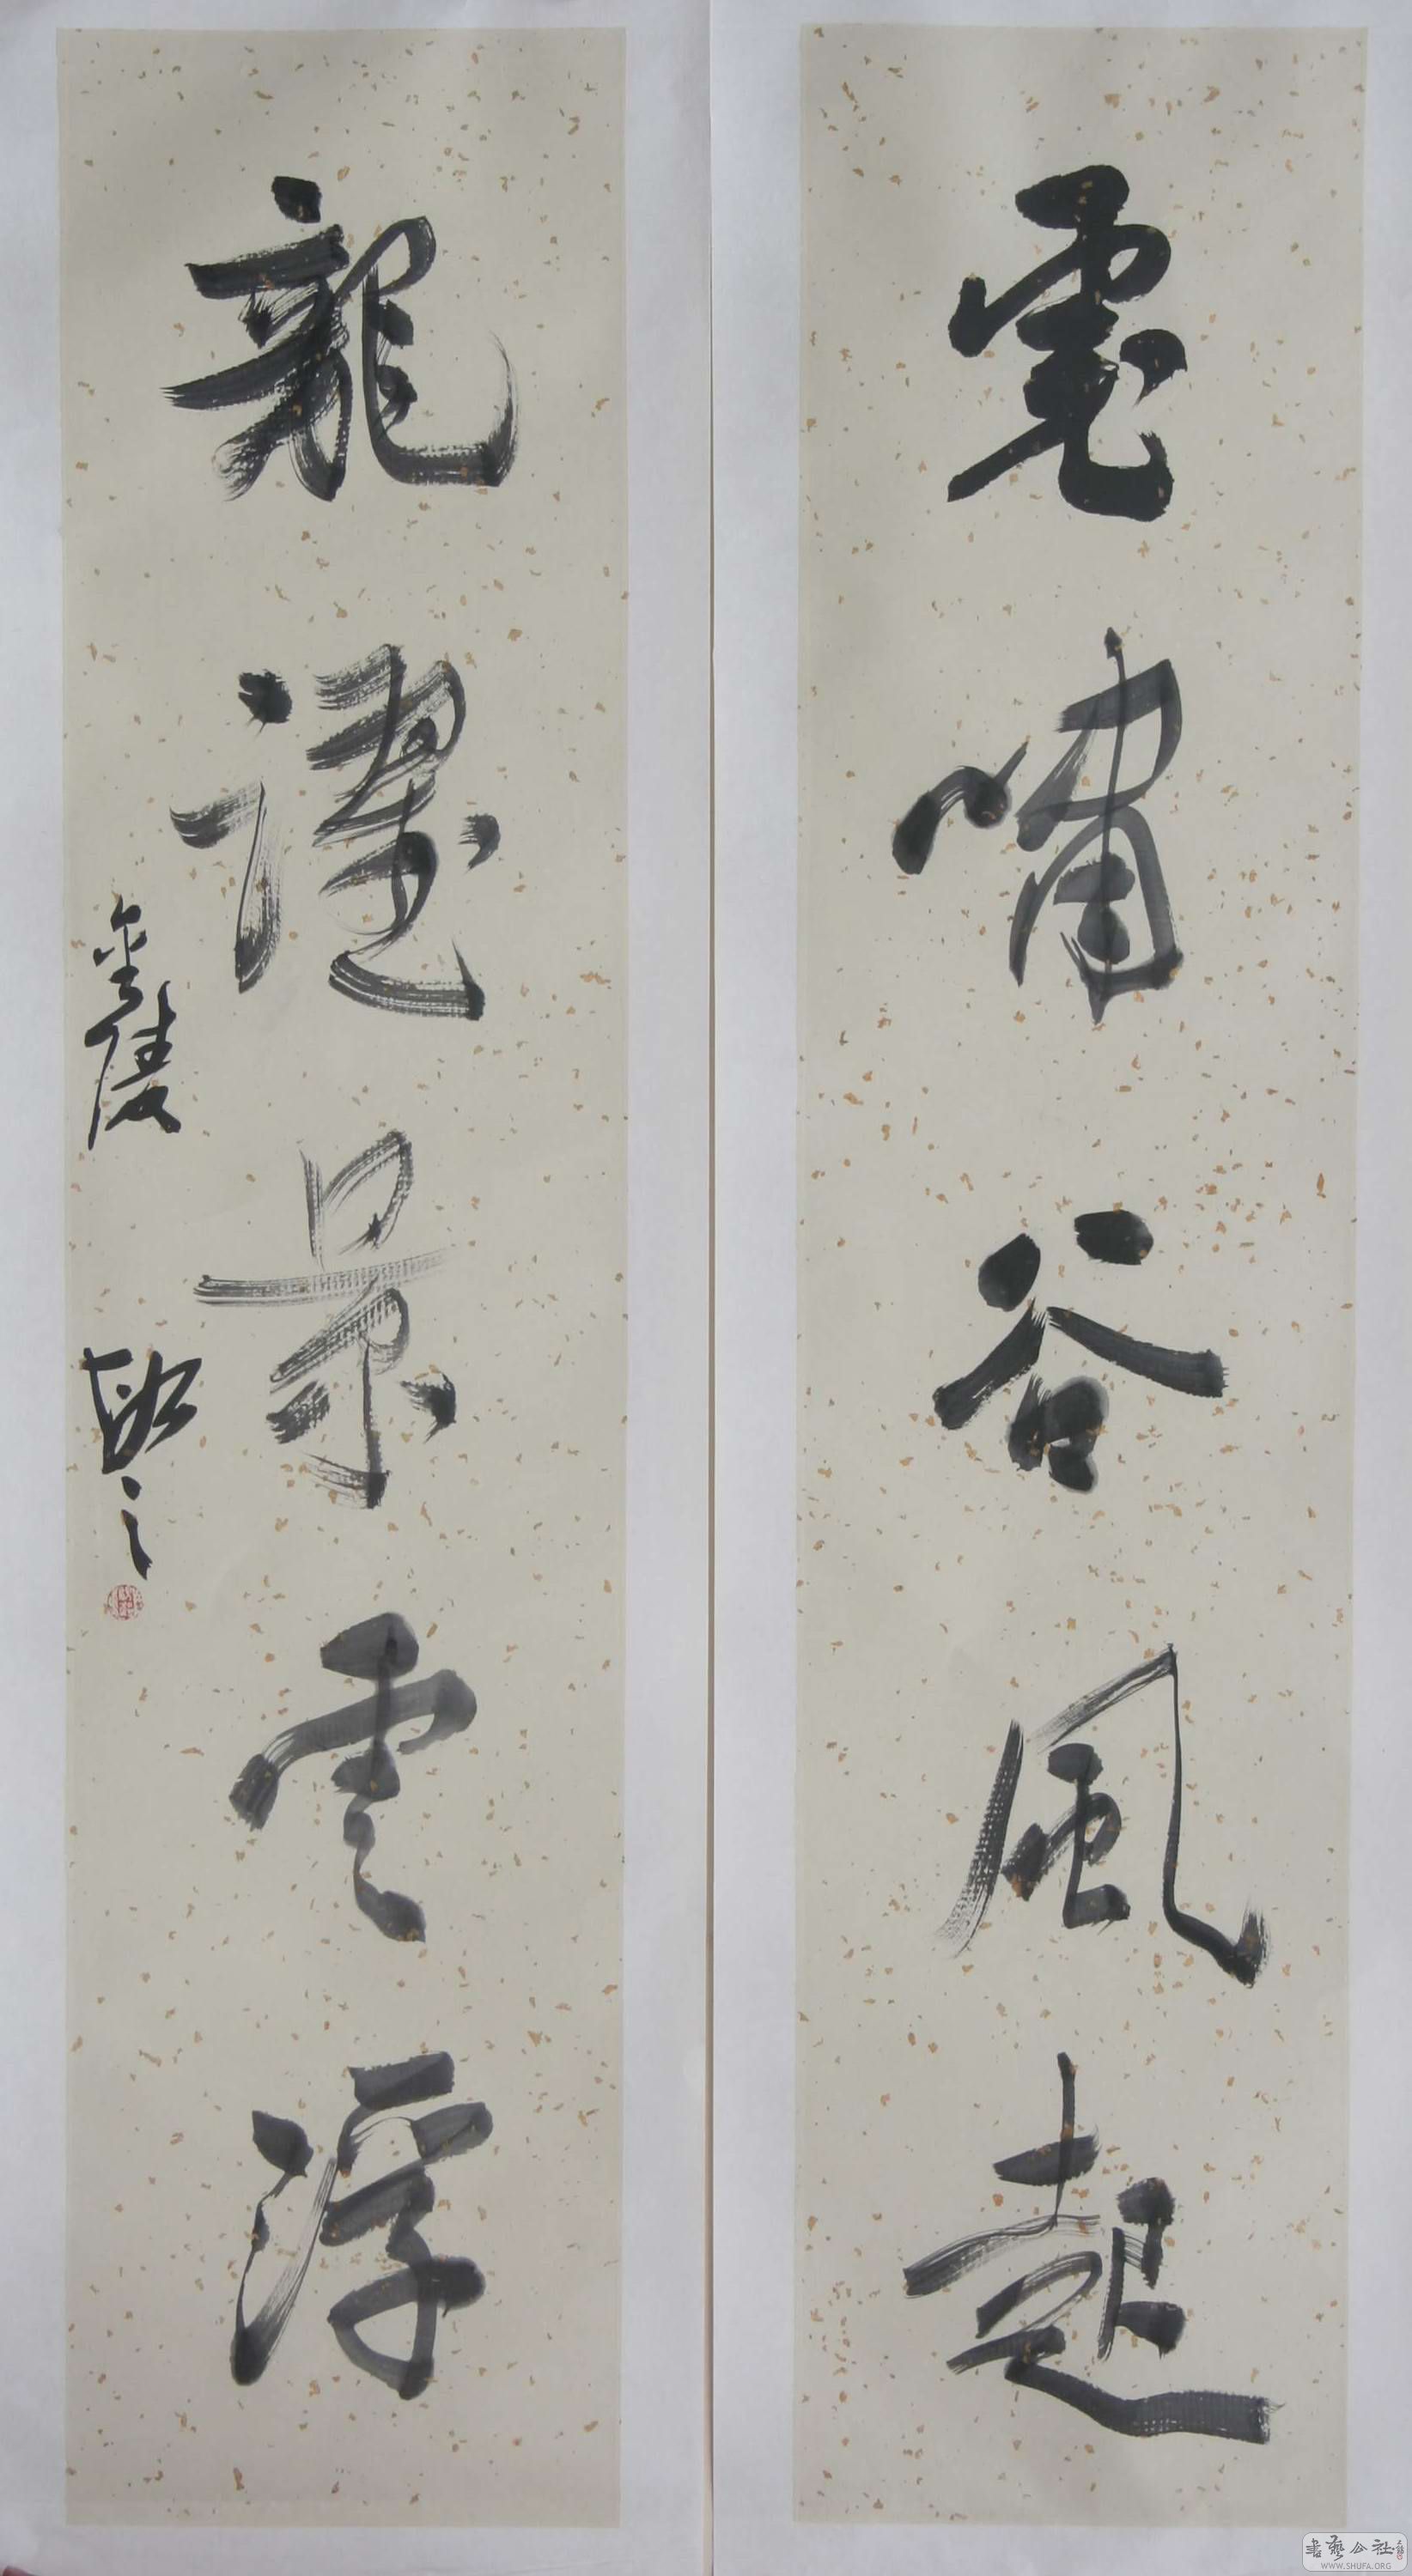 虎嘯谷風起
龍躍景雲浮
金陵
書藝公社
WWW.SHUFA.ORG